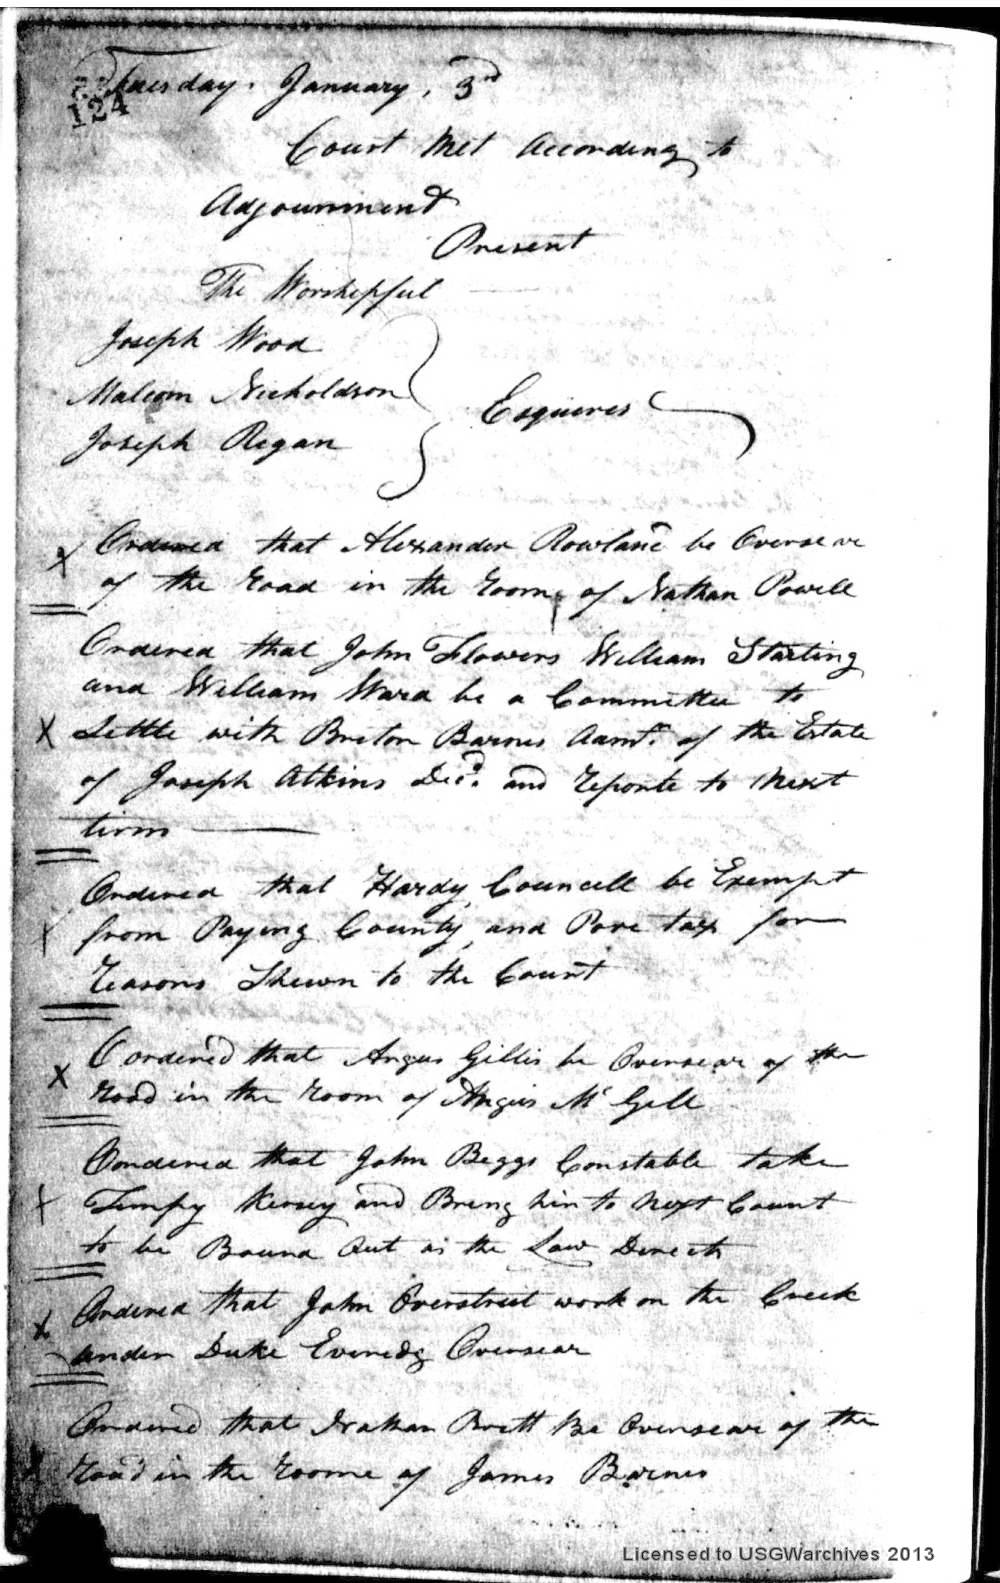 Tuesday. January. 3rd
124
Court Met According to
Adjournment
Present
The Worshipful
Joseph Wood
Malcom Nicholdson
Joseph Regan
Esquires
Ordered that Alexander Rowland be Oversear
of the road in the room of Nathan Powell
Ordered that John Flowers William Starling
and William Ward be a Committee to
Settle with Briton Barnes Admr. of the Estate
of Joseph Atkins Decd. and reporte to Next
term
Ordered that Hardy Councell be Exempt
from Paying County and Pore tax for
reasons Shewn to the Court
Oordered that Angus Gillis be Oversear of the
road in the room of Angus Mc Gill
Oordered that John Beggs Constable take
Kersey and Bring him to Next Court
to be Bound Out as the Law Directs
Ordered that John Overstreet work on the Creek
under Duke Oversear
Ordered that Nathan Brett Be Oversear of the
road in the roome of James Barnes
Licensed to USGWarchives 2013